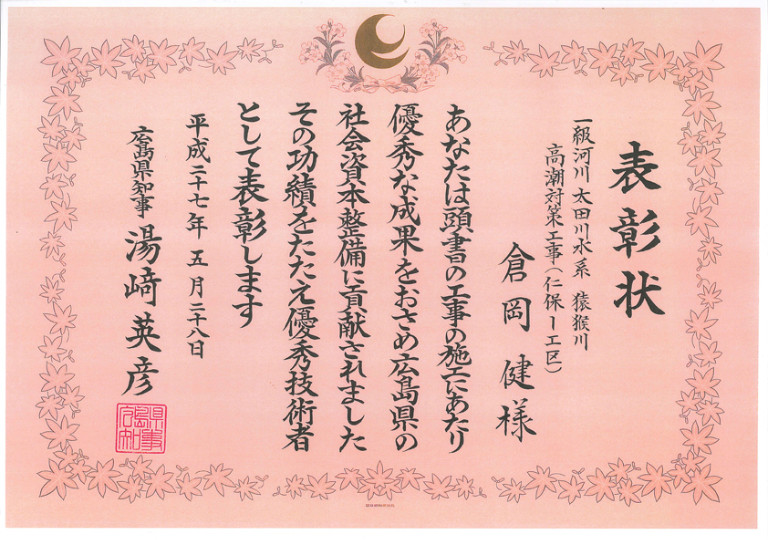 表彰状
一級河川 太田川水系 猿猴川
高潮対策工事(仁保1工区)
倉岡 健 様
あなたは頭書の工事の施工にあたり
優秀な成果をおさめ広島県の
社会資本整備に貢献されました
その功績をたたえ優秀技術者
として表彰します
平成二十七年 五月二十八日
広島県知事 湯﨑英彦